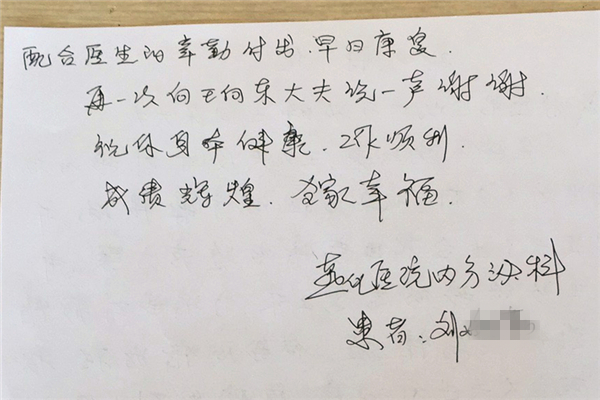 配合医生的辛勤付出.早日康复.
再一次向王向东大夫说一声谢谢.
祝你身体健康.工作顺利.
成绩辉煌.全家幸福.
燕化医院内分泌科
患者:刘